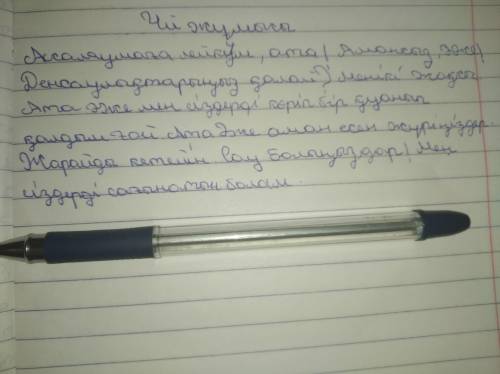 Үй жұмысы
Ассалаумағалейкум, ата! Амансыз, әже!
Денсаулықтарыңыз қалай? менікі жақсы
Ата әже мен сіздерді көріп бір қуанып
қалдым ғой Ата Әже аман есен жүріңіздер.
Жарайды кетейін сау болыңыздар! Мен
сіздерді сағынатын болам.